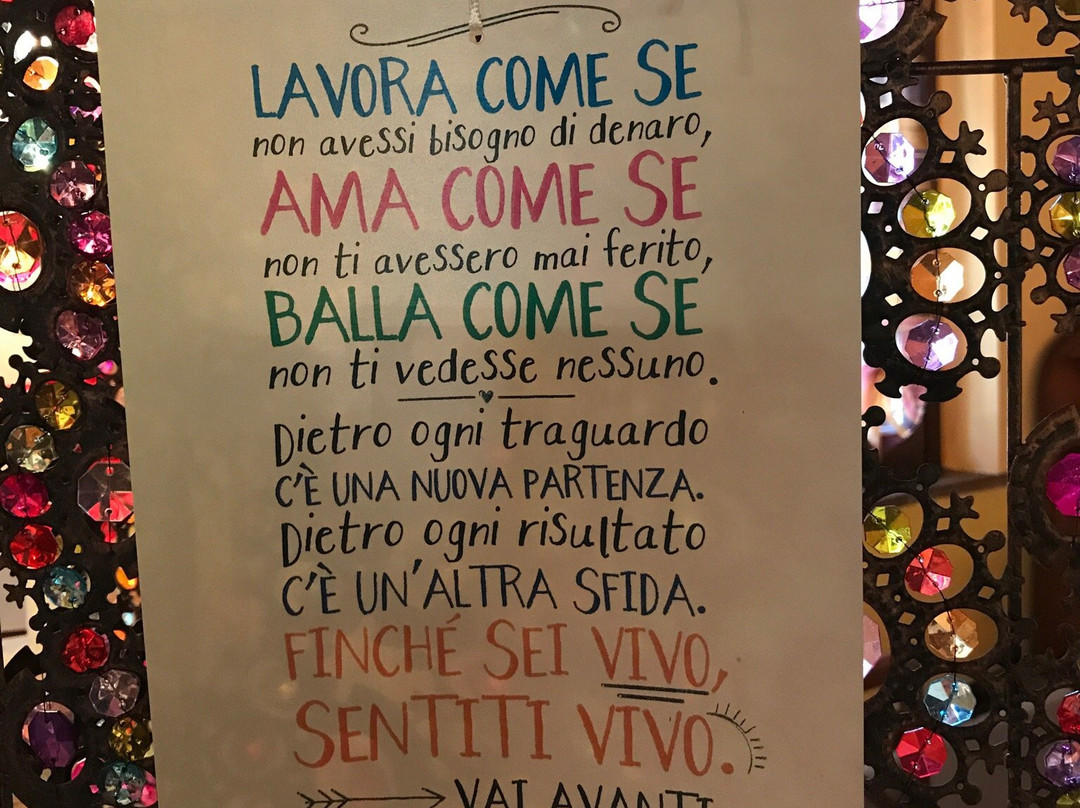 LAVORA COME SE
non avessi bisogno di denaro,
AMA COME SE
non ti avessero mai ferito,
BALLA COME SE
non ti vedesse nessuno.
Dietro ogni traguardo
C'È UNA NUOVA PARTENZA.
Dietro ogni risultato
C'È UN'ALTRA SFIDA.
FINCHÉ SEI VIVO,
SENTITI VIVO.
VAI AVANTI